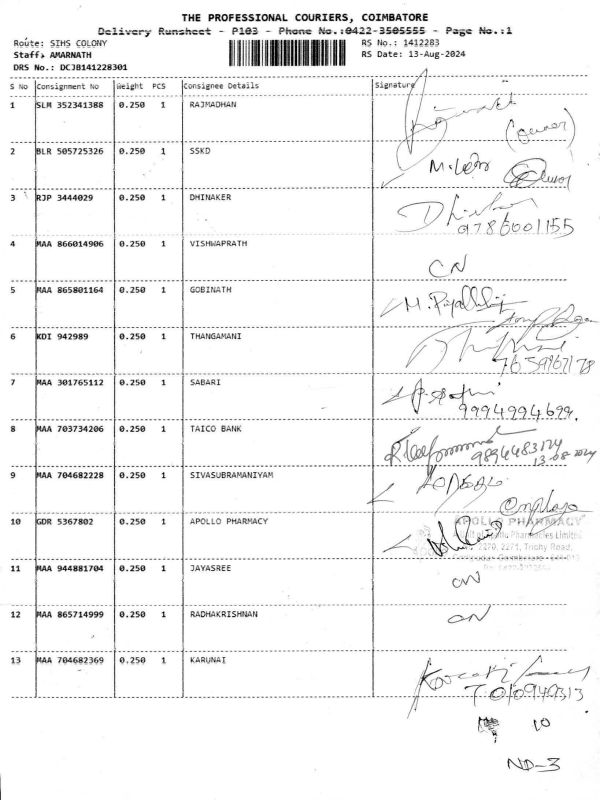 THE PROFESSIONAL COURIERS, COIMBATORE
Delivery Runsheet - P103 - Phone No.:0422-3505555 - Page No.:1
Route: SIHS COLONY RS No.: 1412283
Staff: AMARNATH RS Date: 13-Aug-2024
DRS No.: DCJB141228301
S No Consignment No Weight PCS Consignee Details Signature
1 SLM 352341388 0.250 1 RAJMADHAN
(owner)
2 BLR 505725326 0.250 1 SSKD
3 RJP 3444029 0.250 1 DHINAKER
9786001155
4 MAA 866014906 0.250 1 VISHWAPRATH
CN
5 MAA 865801164 0.250 1 GOBINATH
6 KDI 942989 0.250 1 THANGAMANI
7659867178
7 MAA 301765112 0.250 1 SABARI
9994994699
8 MAA 703734206 0.250 1 TAICO BANK
13-08-2024
9 MAA 704682228 0.250 1 SIVASUBRAMANIYAM
10 GDR 5367802 0.250 1 APOLLO PHARMACY
APOLLO PHARMACY
Pharmacies Limited
2270, 2271, Trichy Road,
11 MAA 944881704 0.250 1 JAYASREE
CN
12 MAA 865714999 0.250 1 RADHAKRISHNAN
CN
13 MAA 704682369 0.250 1 KARUNAI
10
ND-3